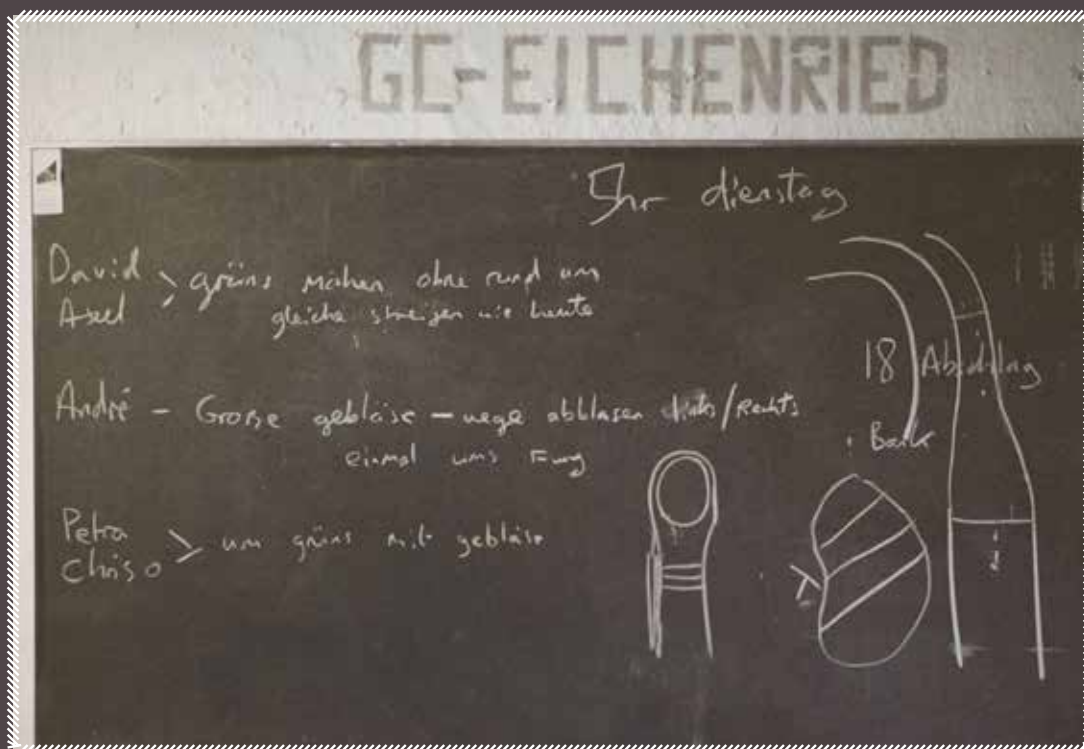 GC-EICHENRIED
5hr dienstag
David
Axel
> grüns mähen ohne rund um
gleiche streifen wie heute
André - Grosse gebläse - wege abblasen links/Rechts
einmal ums
Petra
Chris
> um grüns mit gebläse
18 Abschlag
Bank